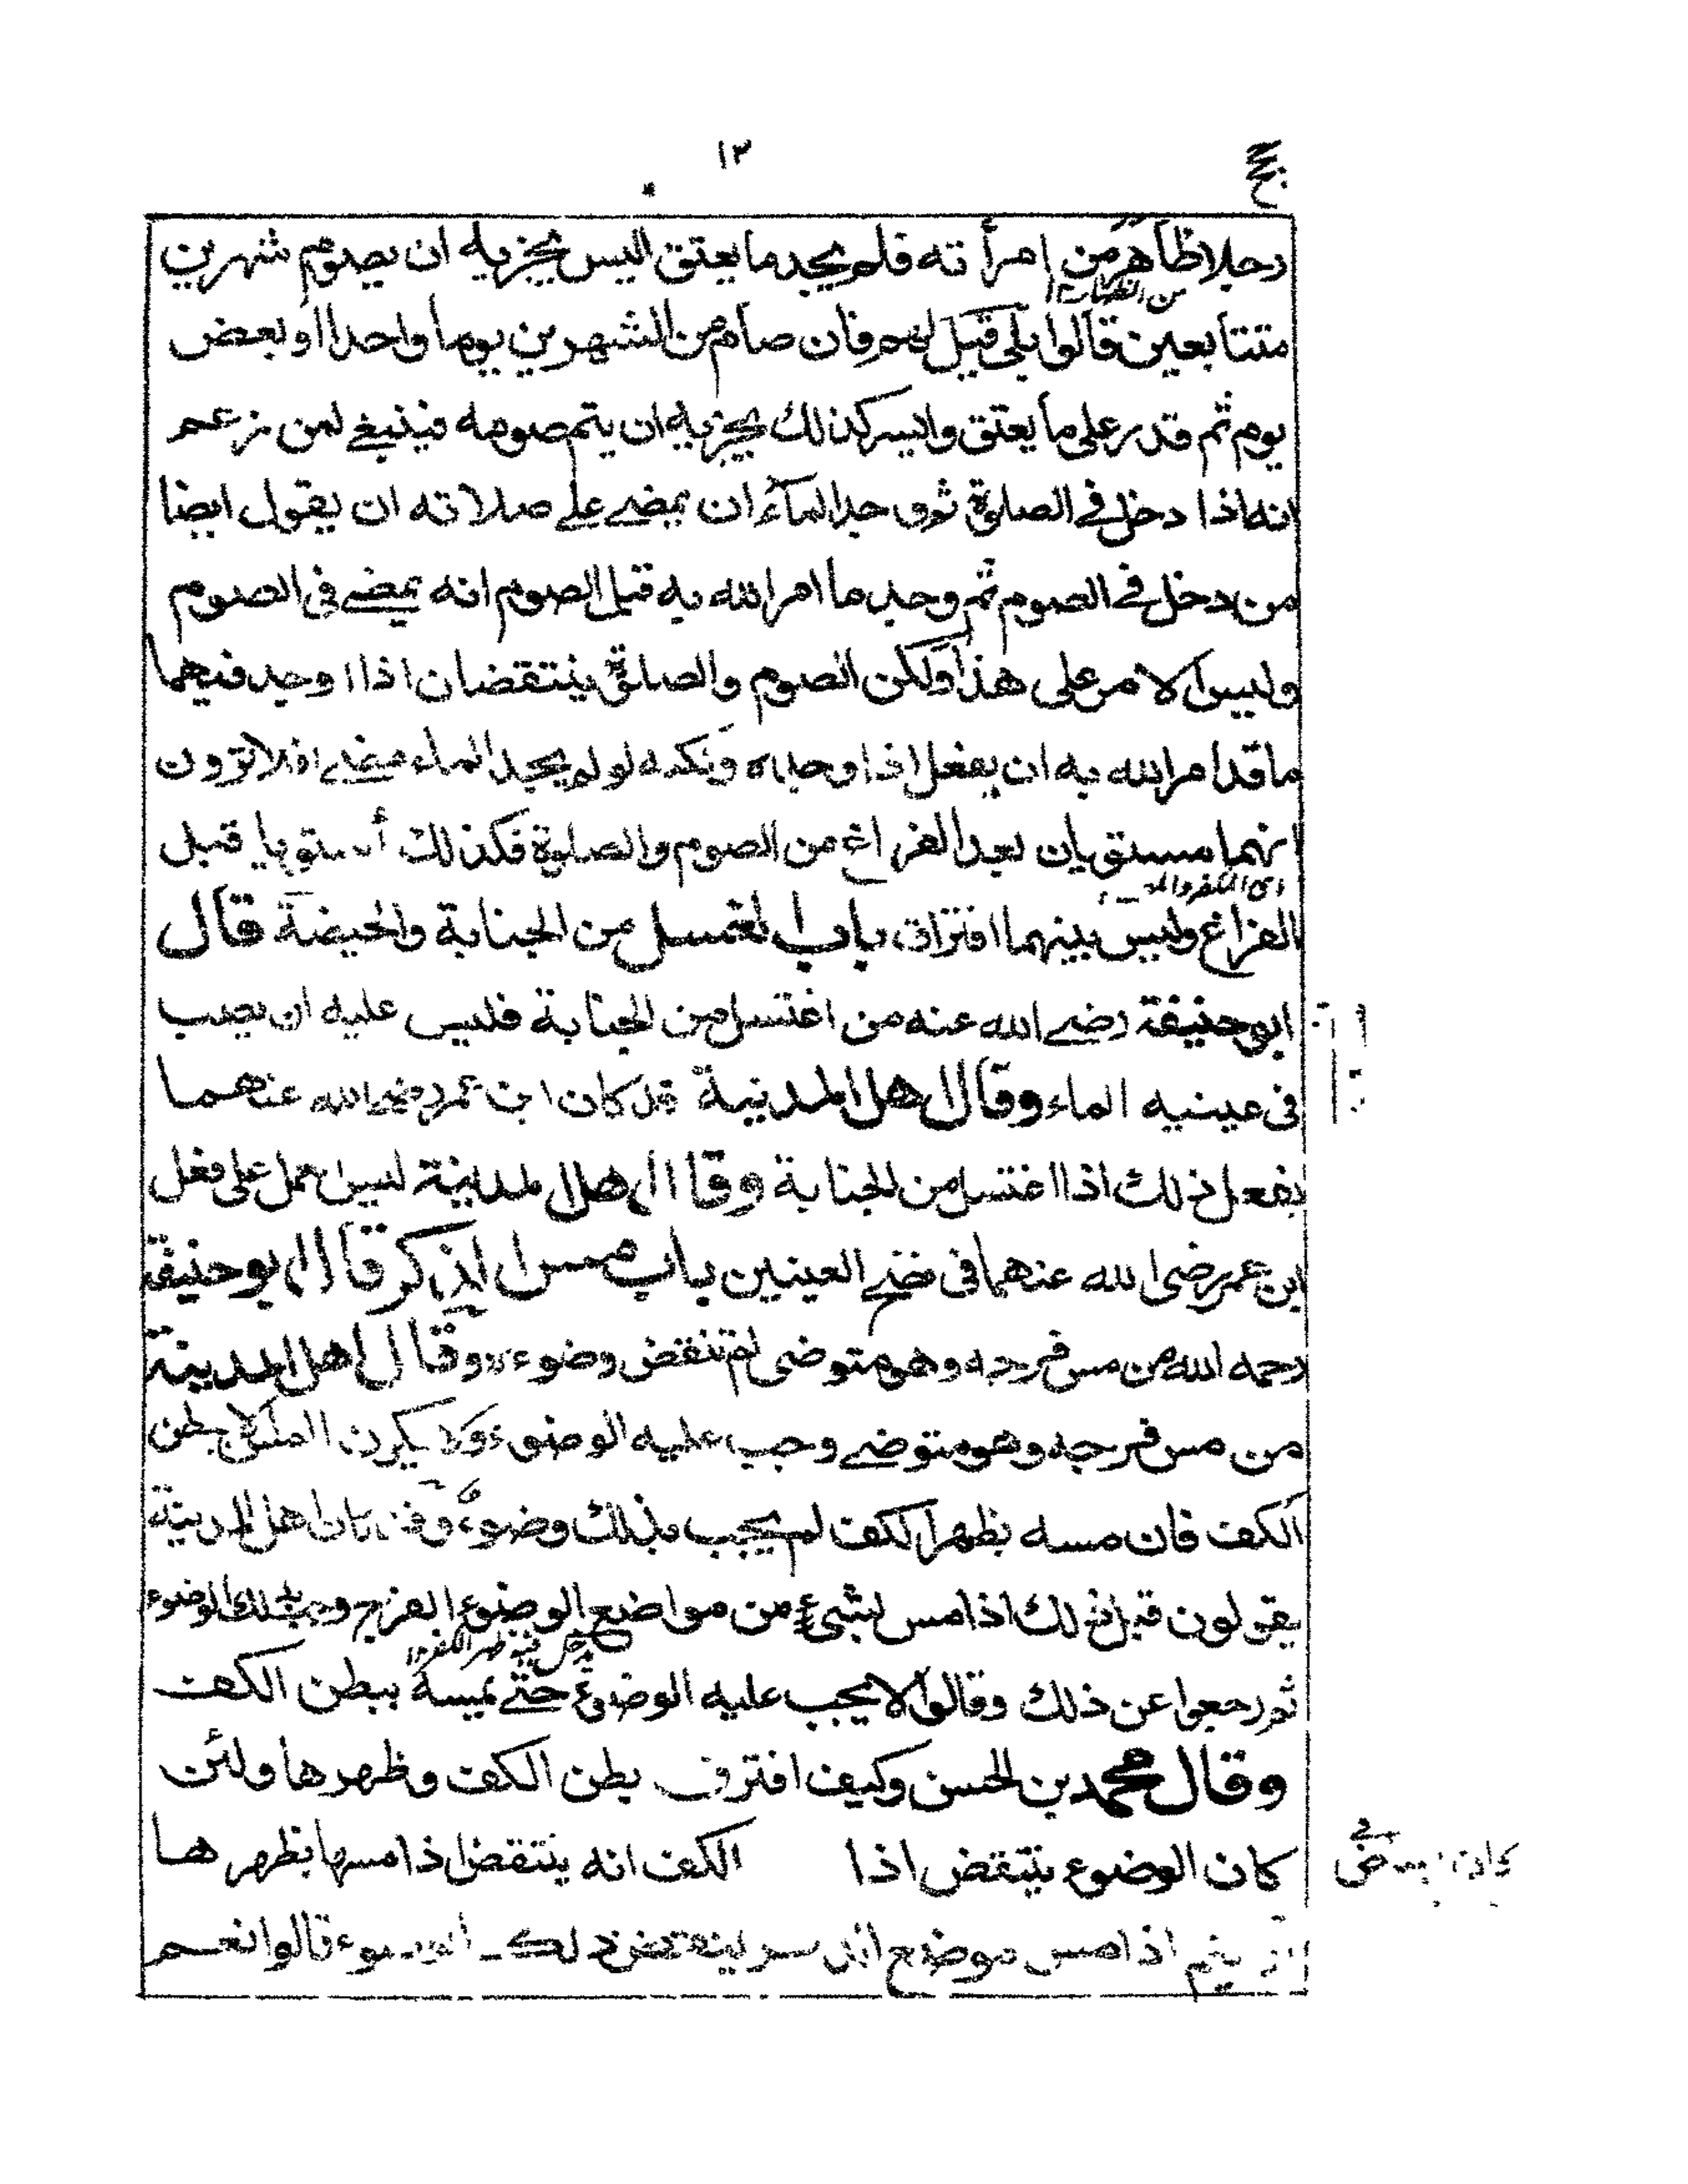 ١٣
رجلا ظاهر من امرأته فلم يجد ما يعتق اليس يجزيه ان يصوم شهرين
متتابعين قالوا بلى قيل لهم فان صام من الشهرين يوما واحدا او بعض
يوم ثم قدر على ما يعتق وايسر كذلك يجزيه ان يتم صومه فينبغي لمن زعم
انه اذا دخل في الصلوة ثم وجد الماء ان يمضي على صلاته ان يقول ايضا
من دخل في الصوم ثم وجد ما امر الله به قبل الصوم انه يمضي في الصوم
وليس الامر على هذا ولكن الصوم والصلوة ينتقضان اذا وجد فيهما
ما قد امر الله به ان يفعل اذا وجده ولو لم يجد الماء مضى افلا ترون
انهما مستويان بعد الفراغ من الصوم والصلوة فكذلك استويا قبل
الفراغ وليس بينهما افتراق باب الغسل من الجنابة والحيضة قال
ابو حنيفة رضي الله عنه من اغتسل من الجنابة فليس عليه ان يصب
في عينيه الماء وقال اهل المدينة قد كان ابن عمر رضي الله عنهما
يفعل ذلك اذا اغتسل من الجنابة وقال اهل المدينة ليس عمل على فعل
ابن عمر رضى الله عنهما في نضح العينين باب مس الذكر قال ابو حنيفة
رحمه الله من مس فرجه وهو متوضى لم تنقض وضوءه وقال اهل المدينة
من مس فرجه وهو متوضي وجب عليه الوضوء ولا يكون الا بباطن
الكف فان مسه بظهر الكف لم يجب بذلك وضوء وقد كان اهل المدينة
يقولون قبل ذلك اذا مس بشيء من مواضع الوضوء الفرج وجب بذلك الوضوء
ثم رجعوا عن ذلك وقالوا لا يجب عليه الوضوء حتى يمسه ببطن الكف
وقال محمد بن الحسن وكيف افترق بطن الكف وظهرها ولئن
كان الوضوء ينتقض اذا الكف انه ينتقض اذا مسها بظهرها
اذا مس موضع قالوا نعم